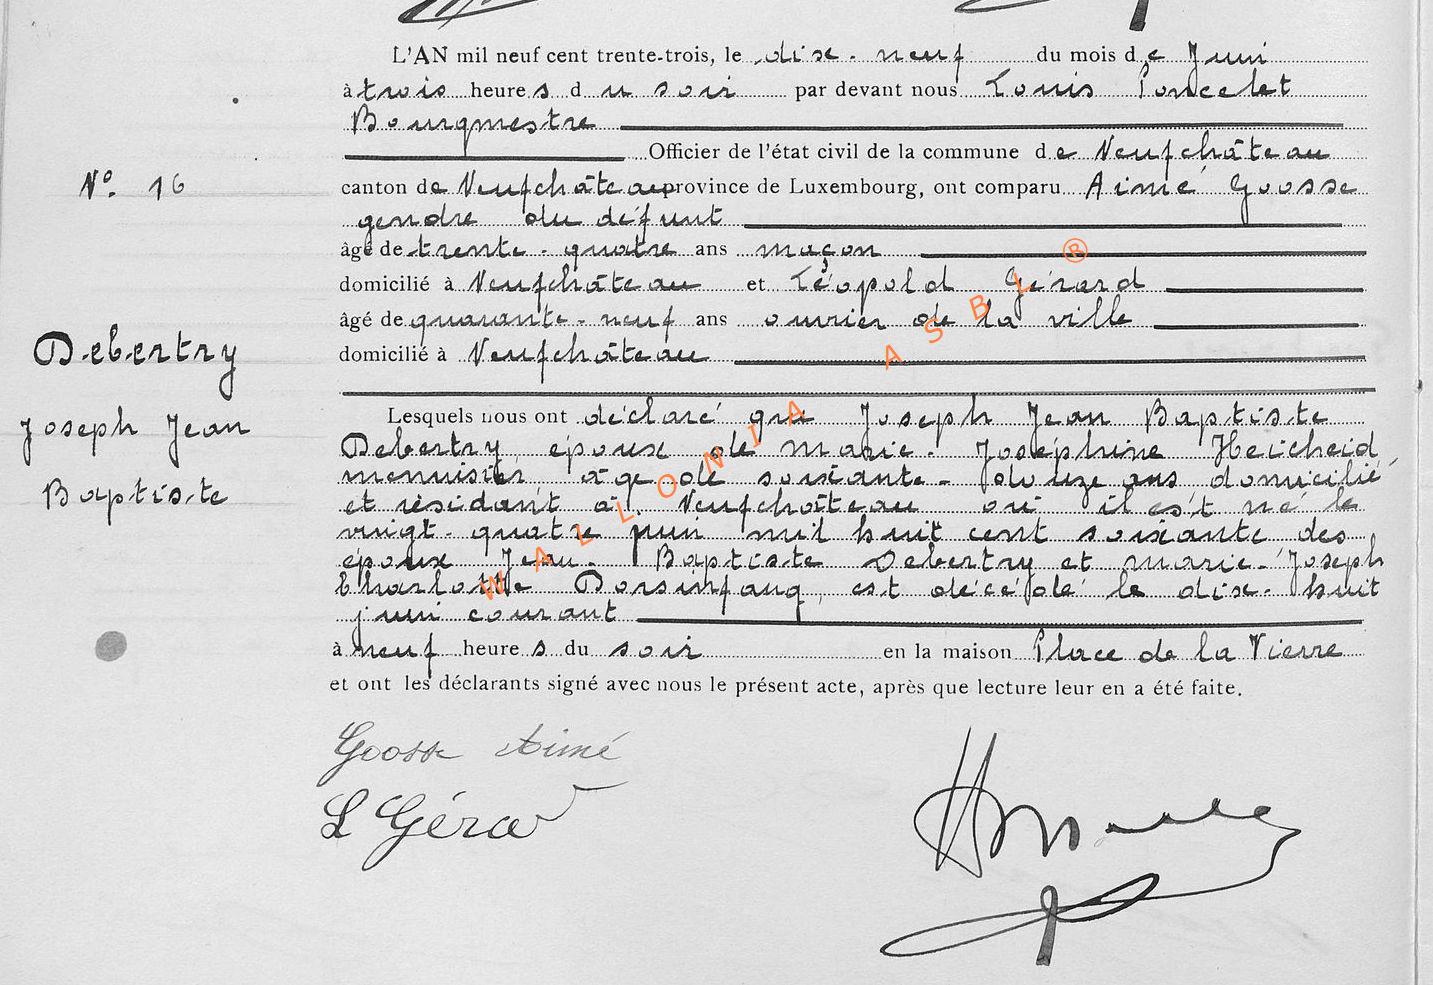 L'AN mil neuf cent trente-trois, le dix-neuf du mois de Juin
à trois heures du soir par devant nous Louis Poncelet
Bourgmestre
Officier de l'état civil de la commune de Neufchâteau
N° 16
canton de Neufchâteau province de Luxembourg, ont comparu Aimé Goosse
gendre du défunt
âgé de trente-quatre ans maçon
domicilié à Neufchâteau et Léopold Gérard
âgé de quarante-neuf ans ouvrier de la ville
domicilié à Neufchâteau
Debertry
Joseph Jean
Baptiste
Lesquels nous ont déclaré que Joseph Jean Baptiste
Debertry, époux de Marie-Joséphine Heicheid
menuisier âgé de soixante-douze ans domicilié
et résidant à Neufchâteau où il est né le
vingt-quatre juin mil huit cent soixante des
époux Jean-Baptiste Debertry et Marie-Joseph
Charlotte Dorsinfang, est décédé le dix-huit
juin courant
à neuf heures du soir en la maison Place de la Vierre
et ont les déclarants signé avec nous le présent acte, après que lecture leur en a été faite.
Goosse Aimé
L Gérard
WALLONIA ASBL ®